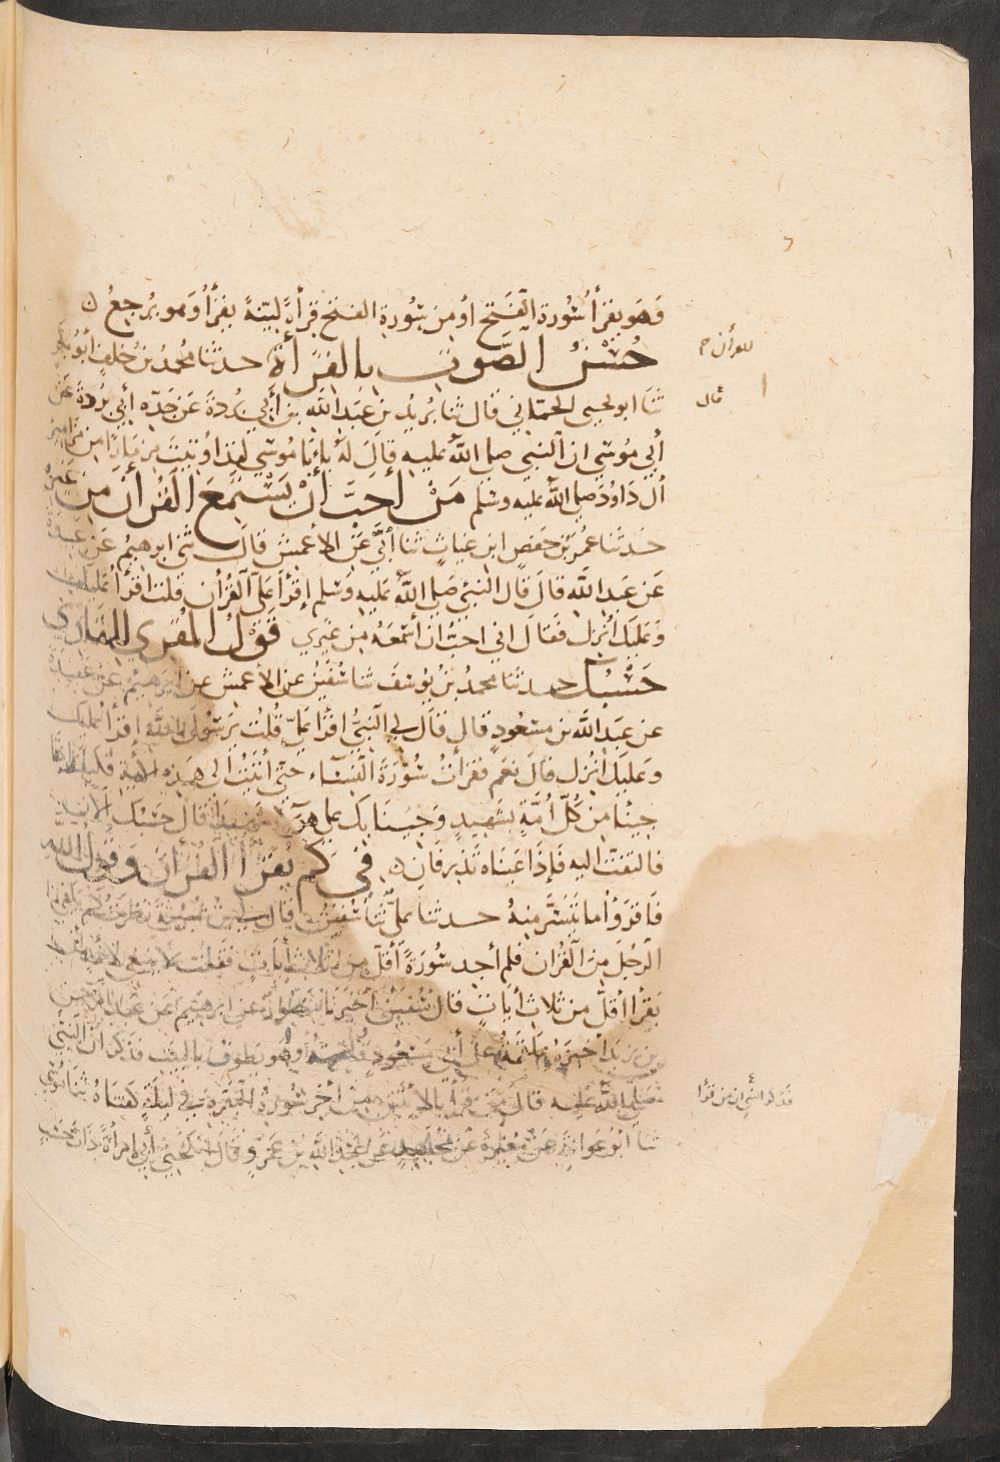 وهو يقرأ سورة الفتح او من سورة الفتح قرأة لينة يقرأ وهو يرجع ن
حسن الصوت بالقرأة حدثنا محمد بن خلف أبو بكر
ثنا ابو يحيى الحماني قال ثنا بريد بن عبد الله بن أبي بردة عن جده أبي بردة عن
أبي موسى ان النبي صلى الله عليه قال له يا با موسى لقد اوتيت مزمارا من مزامير
ال داود صلى الله عليه وسلم من أحب أن يستمع القرأن من غيره
حدثنا عمر بن حفص ابن غياث ثنا أبي عن الأعمش قال ثنى ابرهيم عن عبيدة
عن عبد الله قال قال النبي صلى الله عليه وسلم إقرأ على القرأن قلت اقرأ عليك
وعليك انزل فقال اني احب ان أسمعه من غيري قول المقري للقارئ
حسبك حدثنا محمد بن يوسف ثنا سفين عن الأعمش عن ابرهيم عن عبيدة
عن عبد الله بن مسعود قال قال لي النبي اقرأ علي قلت يرسول الله اقرأ عليك
وعليك انزل قال نعم فقرأت سورة النساء حتى أتيت الى هذه الأية فكيف اذا
جينا من كل أمة بشهيد وجينا بك على هؤلآء شهيدا قال حسبك الآن
فالتفت اليه فإذا عيناه تذرفان في كم يقرأ القرأن وقول الله
فاقرؤا ما تيسر منه حدثنا علي ثنا سفين قال لي ابن شبرمة نظرت كم يكفي
الرجل من القرأن فلم أجد سورة أقل من ثلاث أيات فقلت لا ينبغي لأحد أن
يقرأ أقل من ثلاث أيات قال سفين أخبرنا منصور عن ابرهيم عن عبد الرحمن
بن يزيد اخبره علقمة عن أبي مسعود ولقيته وهو يطوف بالبيت فذكر ان النبي
صلى الله عليه قال من قرأ بالأيتين من أخر سورة البقرة في ليلة كفتاه ثنا موسى
ثنا ابو عوانة عن مغيرة عن مجاهد عن عبد الله بن عمرو قال انكحني أبي امرأة ذات حسب
للقرأن
قال